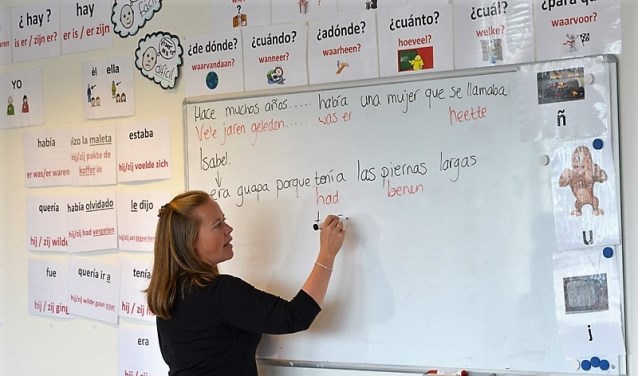 ¿ hay ?
is er / zijn er?
hay
is er / zijn er
¿de dónde?
waarvandaan?
¿cuándo?
wanneer?
¿adónde?
waarheen?
¿cuánto?
hoeveel?
¿cuál?
welke?
¿para qué?
waarvoor?
yo
él ella
Hace muchos años..... había una mujer que se llamaba
Vele jaren geleden..... was er heette
Isabel.
era guapa porque tenía las piernas largas
had benen
ñ
u
j
había
er was/er waren
hizo la maleta
hij/zij pakte de
koffer in
estaba
hij/zij voelde zich
quería
hij / zij wilde
había olvidado
hij/zij had vergeten
le dijo
fue
hij / zij ging
quería ir a
hij/zij wilde gaan
tenía
hij / zij
era
hij / zij